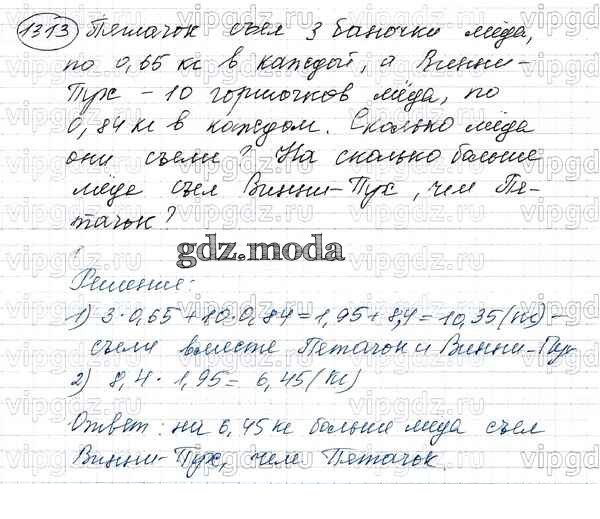 1313 Пятачок съел 3 баночки мёда,
по 0,65 кг в каждой, а Винни-
Пух - 10 горшочков мёда, по
0,84 кг в каждом. Сколько мёда
они съели? На сколько больше
мёда съел Винни-Пух, чем Пя-
тачок?
gdz.moda
Решение:
1) 3·0,65+10·0,84=1,95+8,4=10,35(кг) -
съели вместе Пятачок и Винни-Пух
2) 8,4 · 1,95 = 6,45(кг)
Ответ: на 6,45 кг больше мёда съел
Винни-Пух, чем Пятачок.
vipgdz.ru